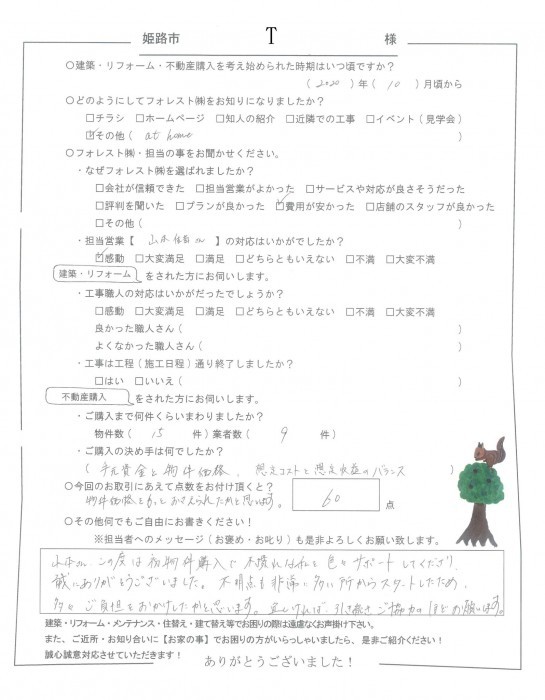 姫路市 T 様
○建築・リフォーム・不動産購入を考え始められた時期はいつ頃ですか?
(2020)年(10)月頃から
○どのようにしてフォレスト㈱をお知りになりましたか?
□チラシ □ホームページ □知人の紹介 □近隣での工事 □イベント(見学会)
☑その他( at home )
○フォレスト㈱・担当の事をお聞かせください。
・なぜフォレスト㈱を選ばれましたか?
□会社が信頼できた □担当営業がよかった □サービスや対応が良さそうだった
□評判を聞いた □プランが良かった ☑費用が安かった □店舗のスタッフが良かった
□その他( )
・担当営業【 山本 さん 】の対応はいかがでしたか?
☑感動 □大変満足 □満足 □どちらともいえない □不満 □大変不満
建築・リフォーム をされた方にお伺いします。
・工事職人の対応はいかがだったでしょうか?
□感動 □大変満足 □満足 □どちらともいえない □不満 □大変不満
良かった職人さん( )
よくなかった職人さん( )
・工事は工程(施工日程)通り終了しましたか?
□はい □いいえ( )
不動産購入 をされた方にお伺いします。
・ご購入まで何件くらいまわりましたか?
物件数( 15 件)業者数( 9 件)
・ご購入の決め手は何でしたか?
( 手元資金と物件価格、想定コストと想定収益のバランス )
○今回のお取引にあえて点数をお付け頂くと?
物件価格をもっとおさえられたかと思います。 60 点
○その他何でもご自由にお書きください!
※担当者へのメッセージ(お褒め・お叱り)も是非よろしくお願い致します。
山本さん、この度は初物件購入で不慣れな私を色々サポートしてくださり、
誠にありがとうございました。不明点も非常に多い所からスタートしたため、
多々ご負担をおかけしたかと思います。宜しければ、引き続きご協力のほどお願いします。
建築・リフォーム・メンテナンス・住替え・建て替え等でお困りの際は遠慮なくお声掛け下さい。
また、ご近所・お知り合いに【お家の事】でお困りの方がいらっしゃいましたら、是非ご紹介ください!
誠心誠意対応させていただきます! ありがとうございました!